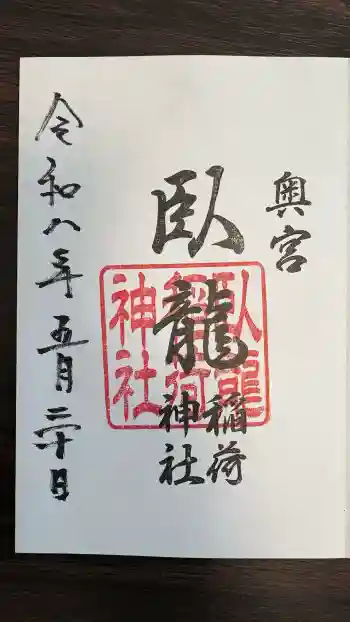 奥宮
臥龍
稲荷
神社
令和八年五月二十日
臥龍
稲荷
神社